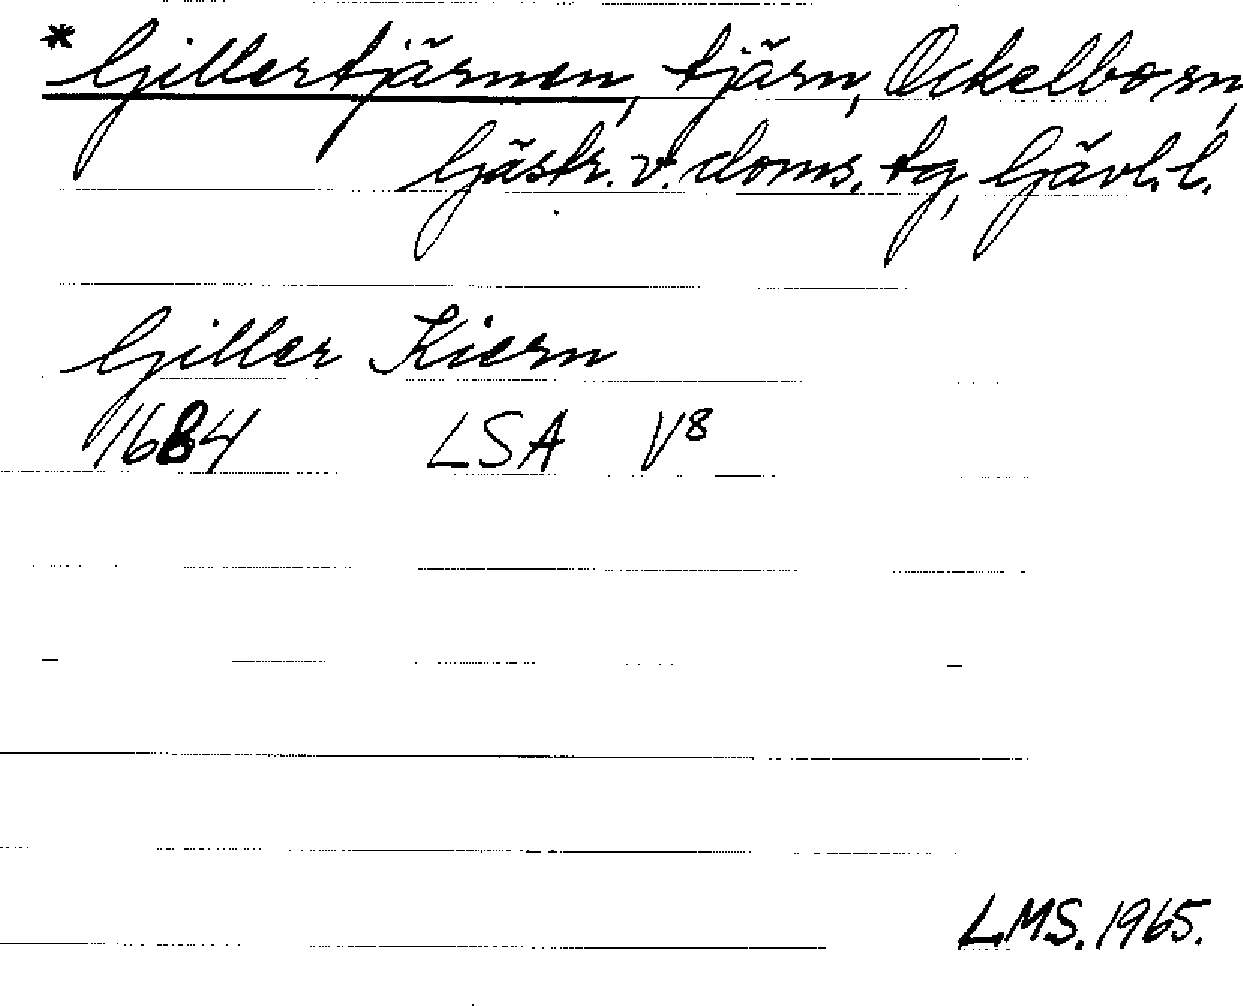 * Gillertjärnen, tjärn, Ockelbo sn,
Gästr. v. doms. tg, Gävl. l.
Giller Kiern
1684 LSA V8
LMS. 1965.